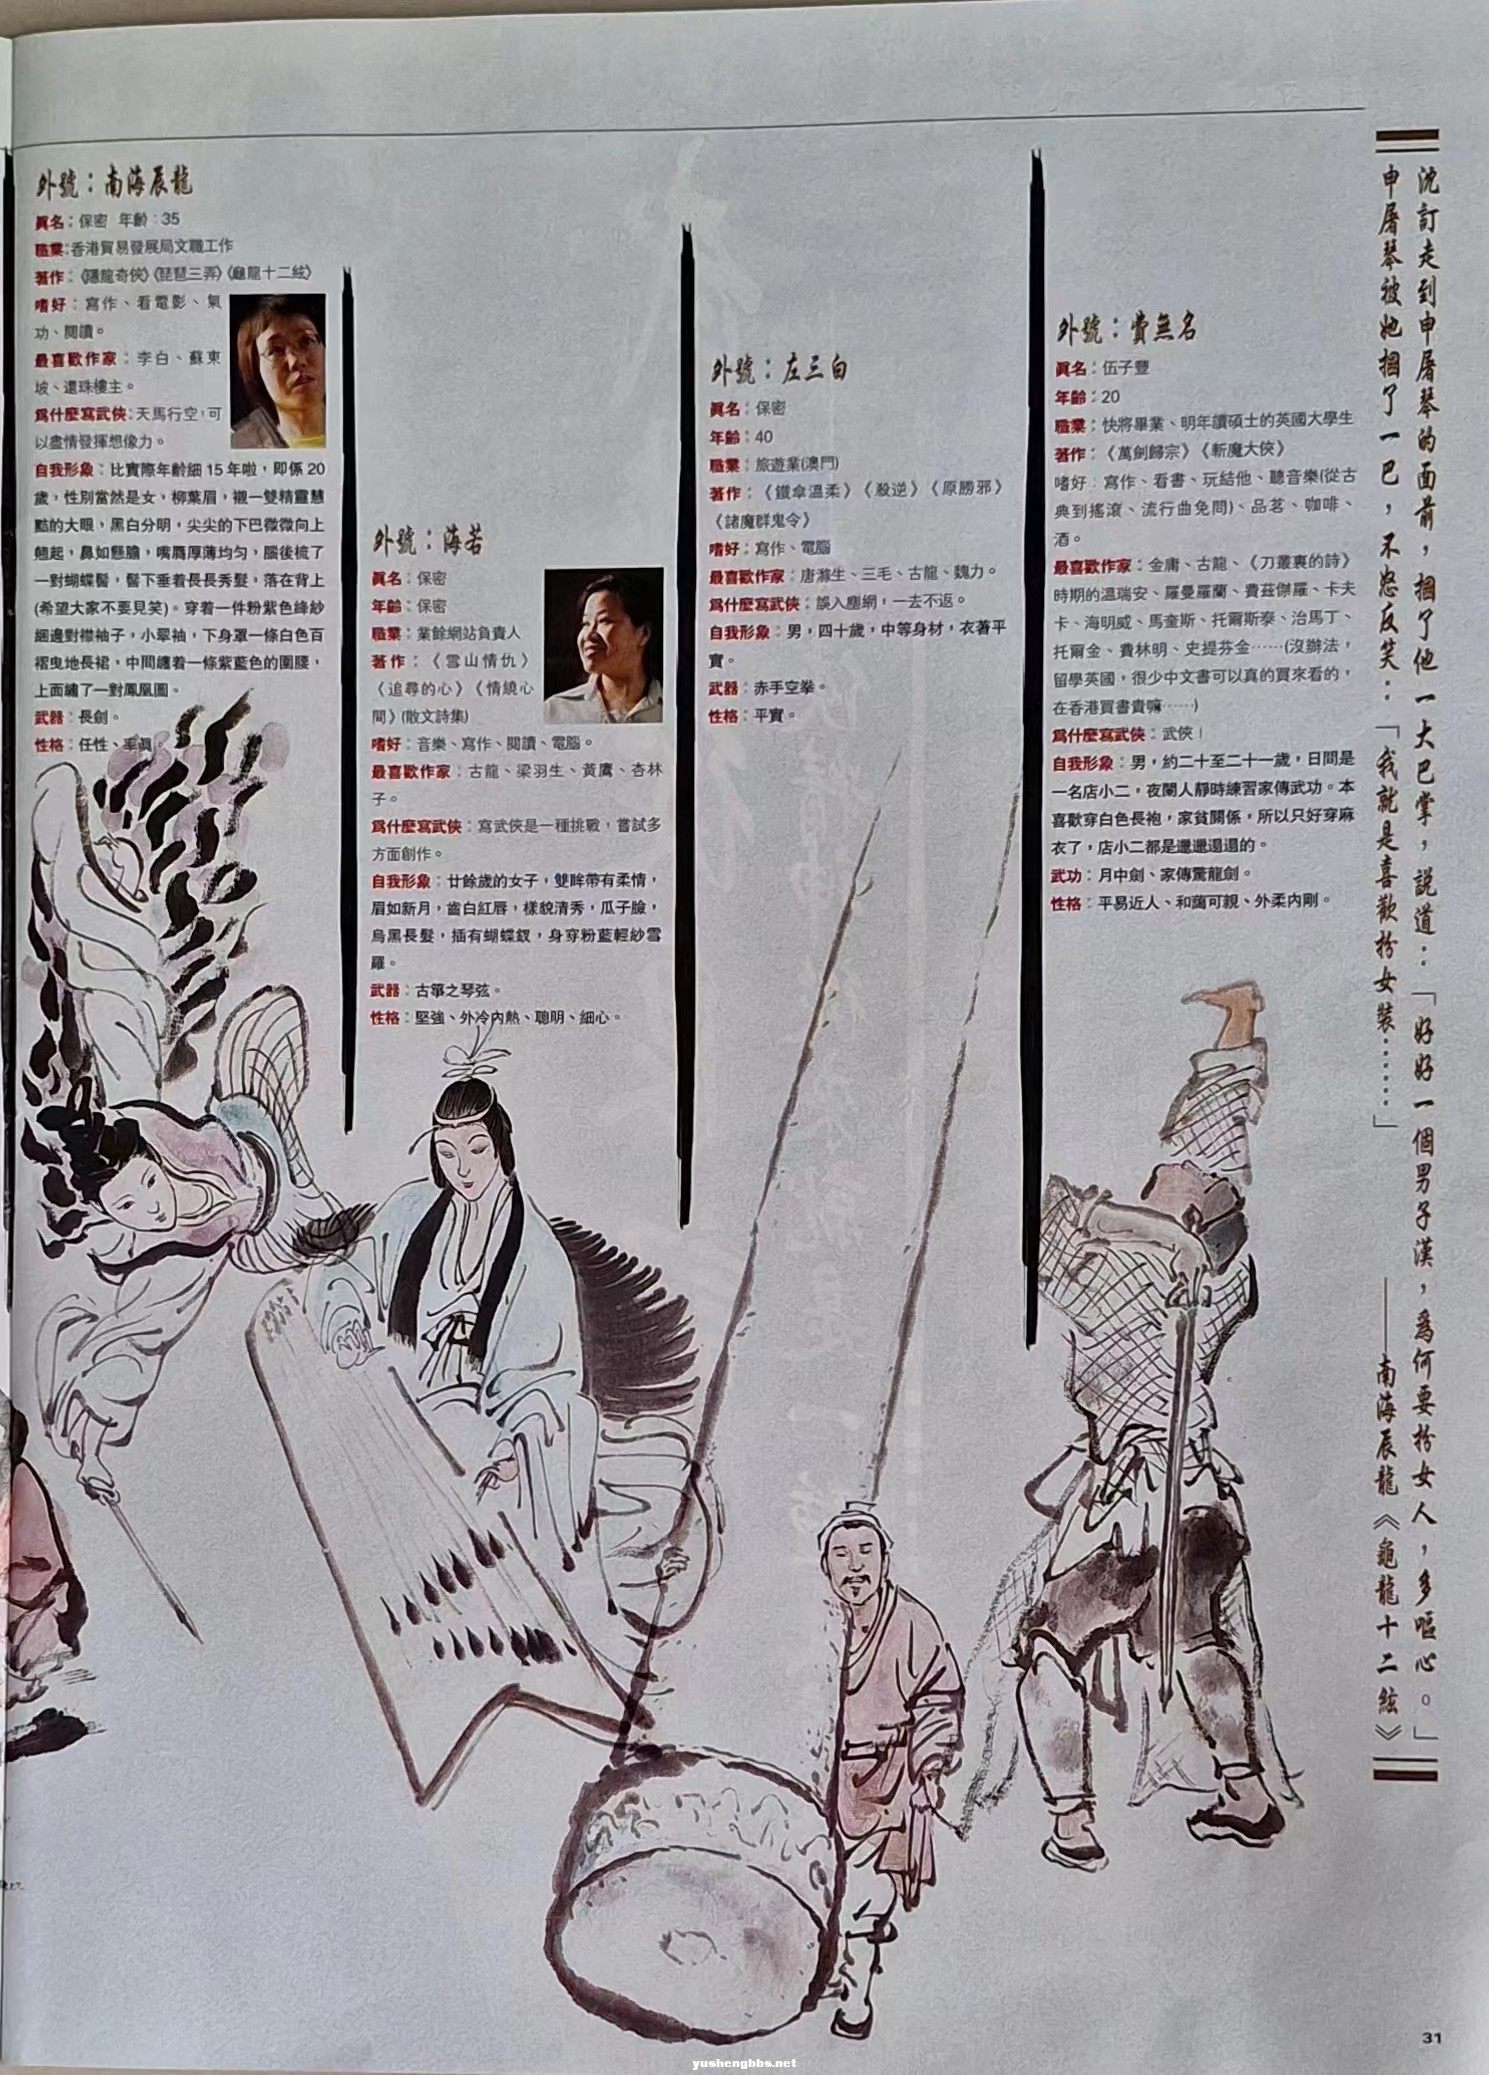 外號：南海辰龍
眞名：保密 年齡：35
職業：香港貿易發展局文職工作
著作：《隱龍奇俠》《琵琶三弄》《龜龍十二絃》
嗜好：寫作、看電影、氣
功、閱讀。
最喜歡作家：李白、蘇東
坡、還珠樓主。
爲什麼寫武俠：天馬行空，可
以盡情發揮想像力。
自我形象：比實際年齡細 15 年啦，即係 20
歲，性別當然是女，柳葉眉，襯一雙精靈慧
黠的大眼，黑白分明，尖尖的下巴微微向上
翹起，鼻如懸膽，嘴唇厚薄均勻，腦後梳了
一對蝴蝶髻，髻下垂着長長秀髮，落在背上
(希望大家不要見笑)。穿着一件粉紫色絳紗
細邊對襟袖子，小翠袖，下身罩一條白色百
褶曳地長裙，中間纏着一條紫藍色的圍腰，
上面繡了一對鳳凰圖。
武器：長劍。
性格：任性、率眞。
外號：海若
眞名：保密
年齡：保密
職業：業餘網站負責人
著作：《雪山情仇》
《追尋的心》《情繞心
間》(散文詩集)
嗜好：音樂、寫作、閱讀、電腦。
最喜歡作家：古龍、梁羽生、黃鷹、杏林
子。
爲什麼寫武俠：寫武俠是一種挑戰，嘗試多
方面創作。
自我形象：廿餘歲的女子，雙眸帶有柔情，
眉如新月，齒白紅唇，樣貌清秀，瓜子臉，
烏黑長髮，插有蝴蝶釵，身穿粉藍輕紗雪
羅。
武器：古箏之琴弦。
性格：堅強、外冷內熱、聰明、細心。
外號：左三白
眞名：保密
年齡：40
職業：旅遊業(澳門)
著作：《鐵傘溫柔》《殺逆》《原勝邪》
《諸魔群鬼令》
嗜好：寫作、電腦
最喜歡作家：唐滌生、三毛、古龍、魏力。
爲什麼寫武俠：誤入塵網，一去不返。
自我形象：男，四十歲，中等身材，衣著平
實。
武器：赤手空拳。
性格：平實。
外號：費無名
眞名：伍子豐
年齡：20
職業：快將畢業、明年讀碩士的英國大學生
著作：《萬劍歸宗》《斬魔大俠》
嗜好：寫作、看書、玩結他、聽音樂(從古
典到搖滾、流行曲免問)、品茗、咖啡、
酒。
最喜歡作家：金庸、古龍、《刀叢裏的詩》
時期的溫瑞安、羅曼羅蘭、費茲傑羅、卡夫
卡、海明威、馬奎斯、托爾斯泰、治馬丁、
托爾金、費林明、史提芬金……(沒辦法，
留學英國，很少中文書可以真的買來看的，
在香港買書貴嘛……)
爲什麼寫武俠：武俠！
自我形象：男，約二十至二十一歲，日間是
一名店小二，夜闌人靜時練習家傳武功。本
喜歡穿白色長袍，家貧關係，所以只好穿麻
衣了，店小二都是邋邋遢遢的。
武功：月中劍、家傳驚龍劍。
性格：平易近人、和藹可親、外柔內剛。
沈訂走到申屠琴的面前，摑了他一大巴掌，說道：「好好一個男子漢，爲何要扮女人，多嘔心。」
申屠琴被她摑了一巴，不怒反笑：「我就是喜歡扮女裝……」
——南海辰龍《龜龍十二絃》
31
yushengbbs.net